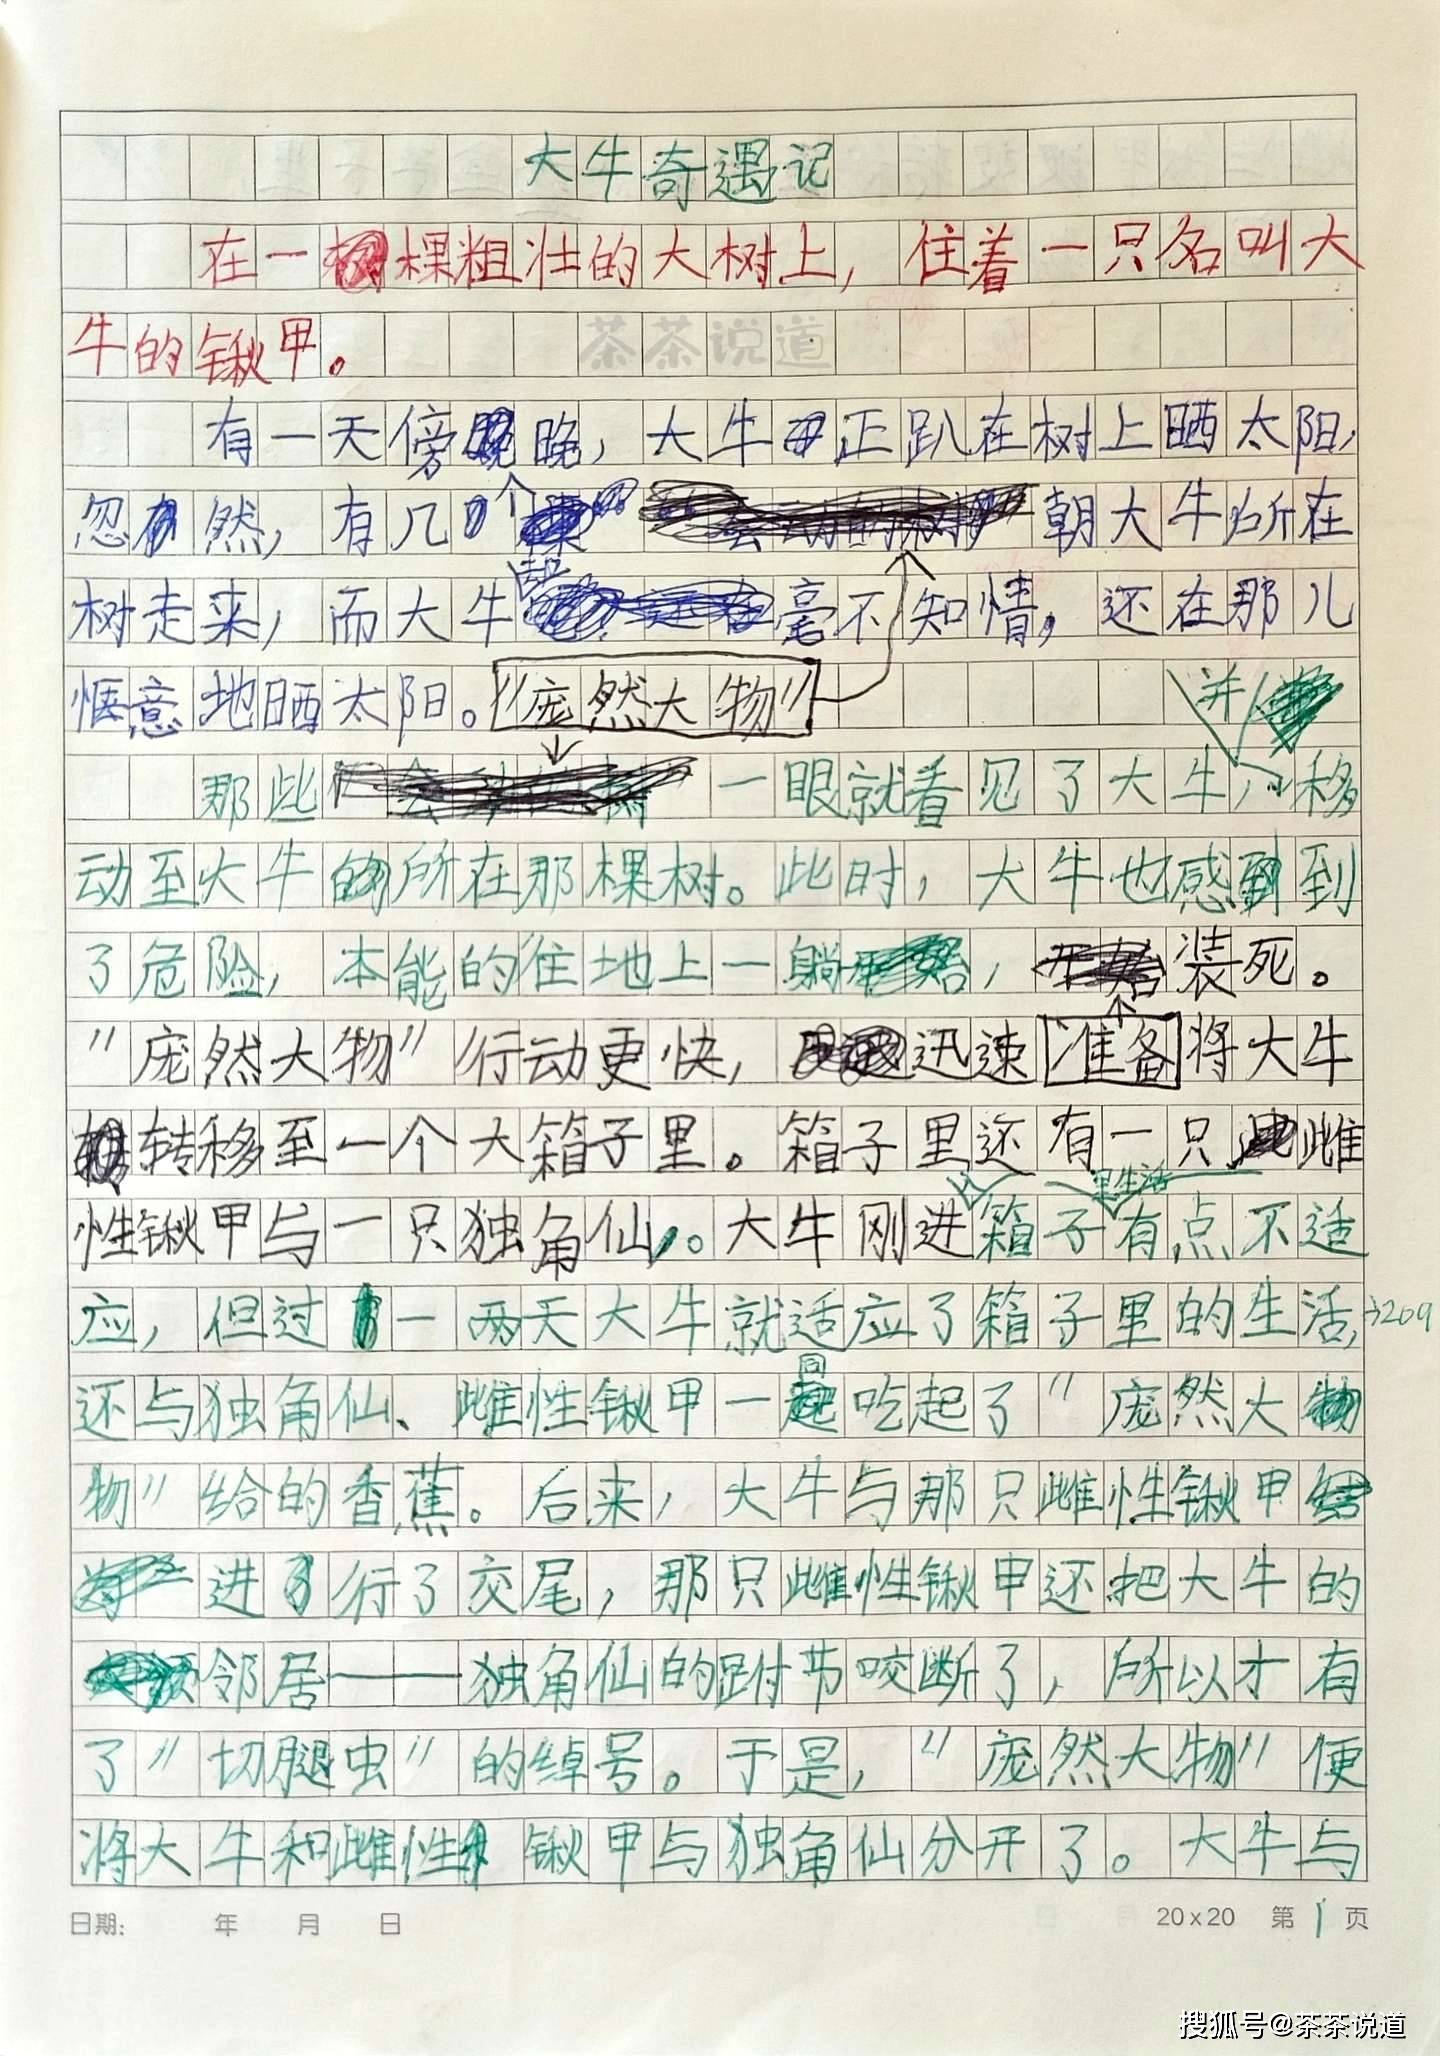 大牛奇遇记
在一棵粗壮的大树上，住着一只名叫大
牛的锹甲。
茶茶说道
有一天傍晚，大牛正趴在树上晒太阳，
忽然，有几个朝大牛所在
树走来，而大牛毫不知情，还在那儿
惬意地晒太阳。“庞然大物”
并
那些一眼就看见了大牛，移
动至大牛所在那棵树。此时，大牛也感到
了危险，本能的往地上一躺，装死。
“庞然大物”行动更快，迅速准备将大牛
转移至一个大箱子里。箱子里还有一只雌
里生活
性锹甲与一只独角仙。大牛刚进箱子有点不适
应，但过一两天大牛就适应了箱子里的生活，→209
同
还与独角仙、雌性锹甲一吃起了“庞然大
物”给的香蕉。后来，大牛与那只雌性锹甲
进行了交尾，那只雌性锹甲还把大牛的
邻居——独角仙的跗节咬断了，所以才有
了“切腿虫”的绰号。于是，“庞然大物”便
将大牛和雌性锹甲与独角仙分开了。大牛与
日期： 年 月 日 20×20 第1页
搜狐号@茶茶说道